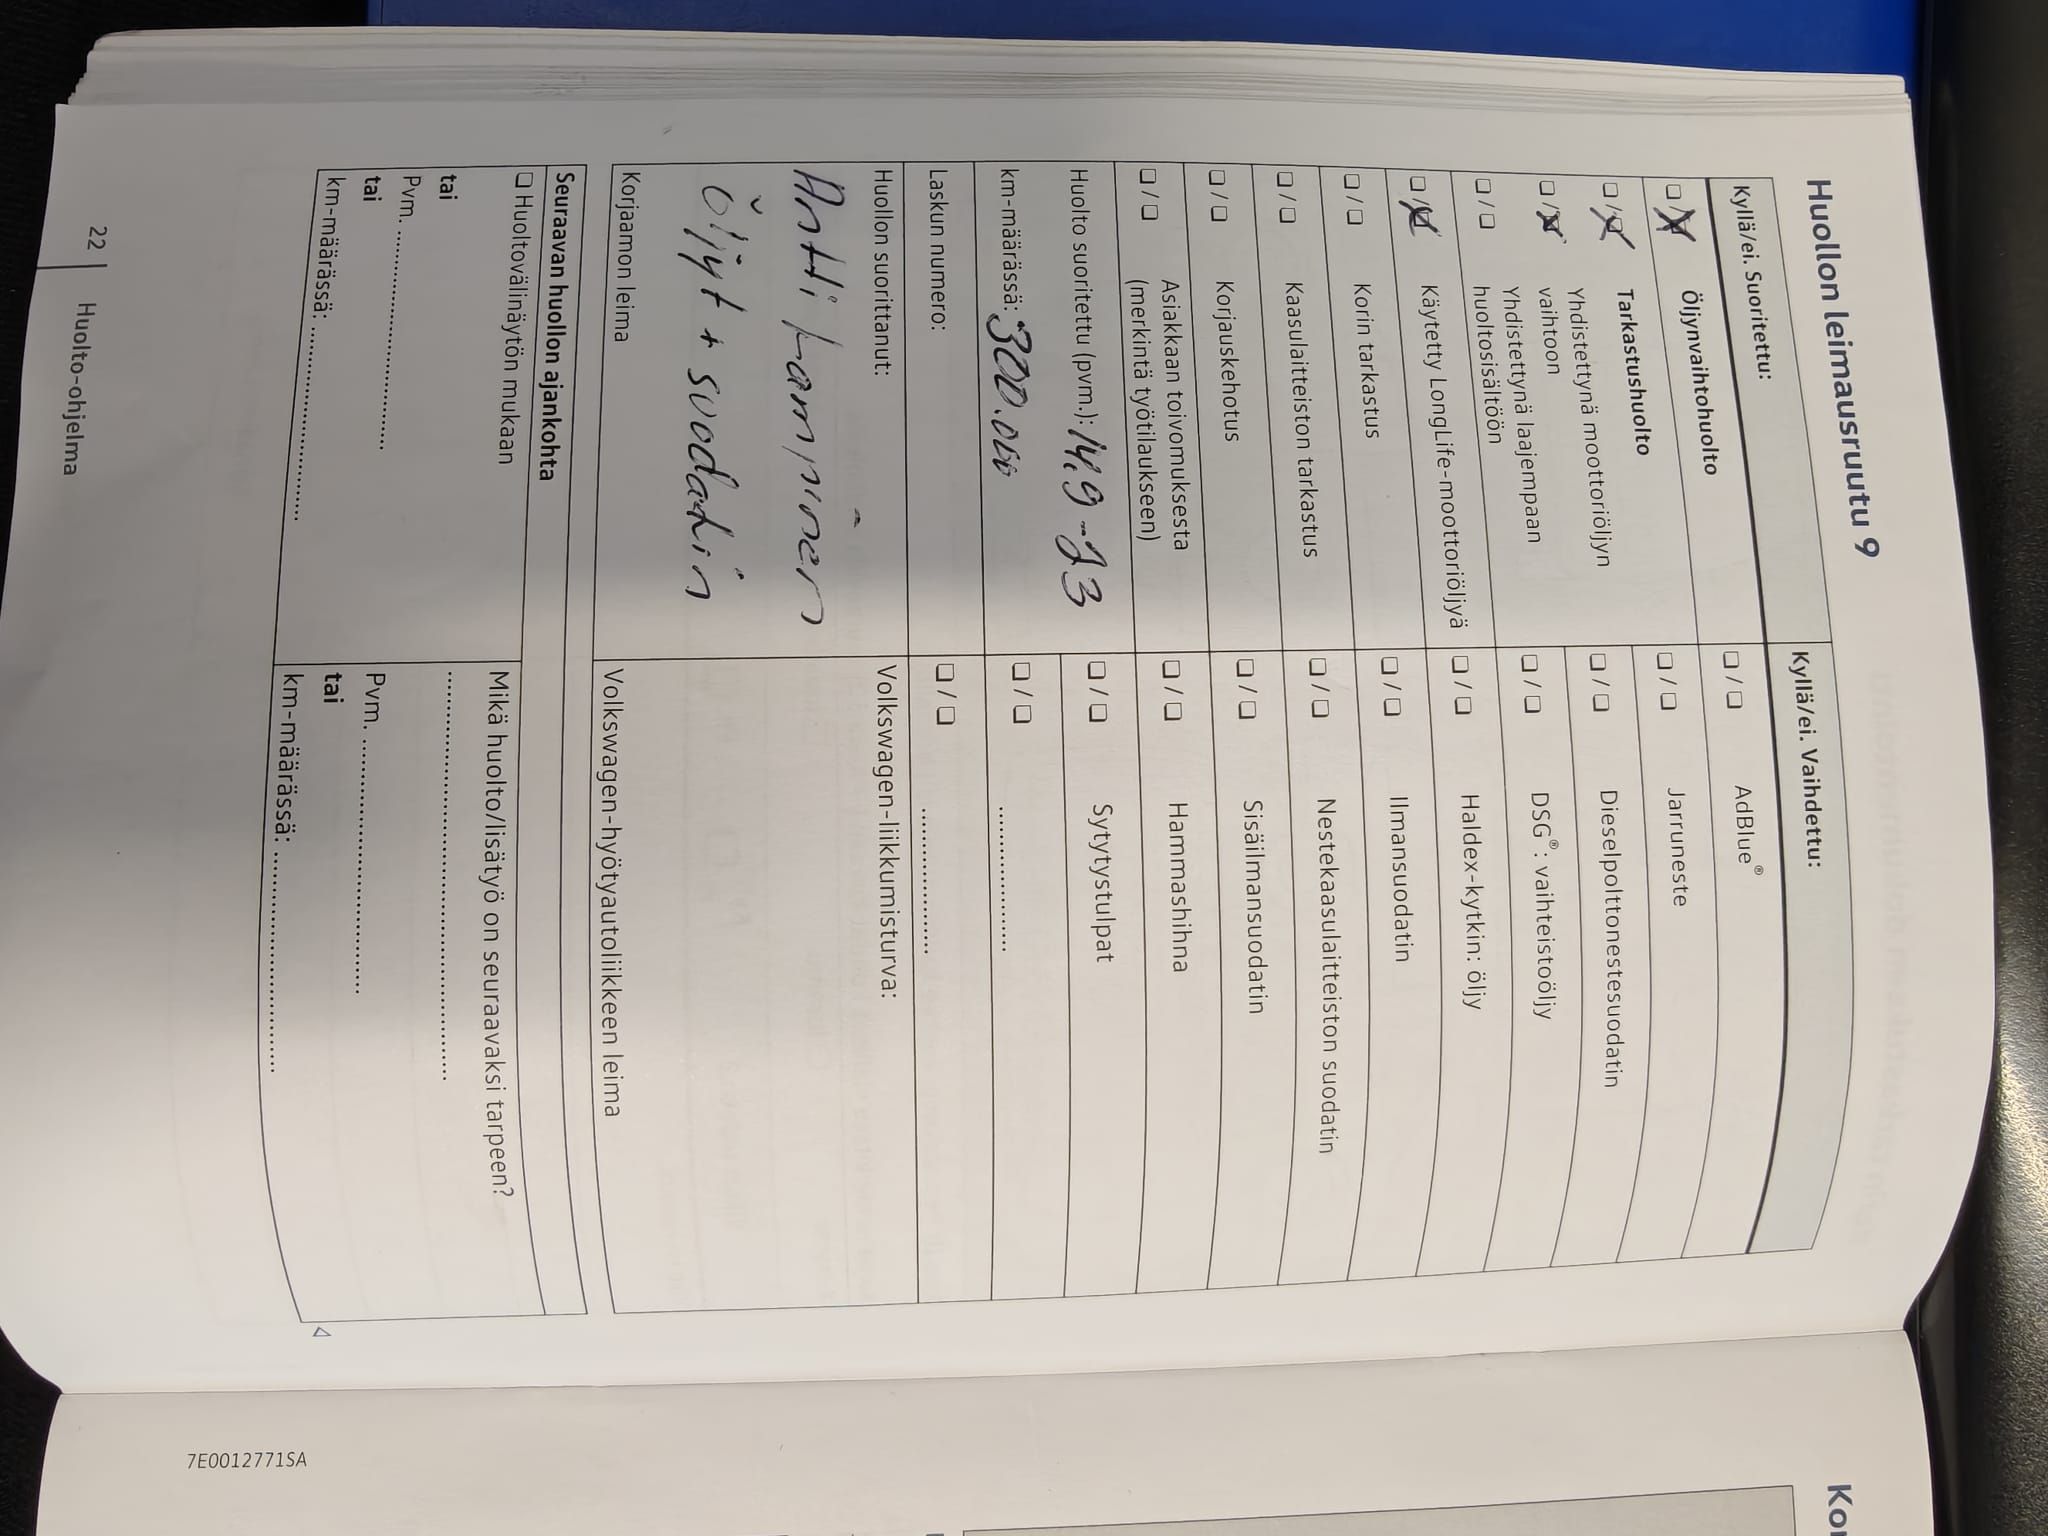 Huollon leimausruutu 9
Kyllä/ei. Suoritettu:
❏ / ❏ Öljynvaihtohuolto
❏ / ❏ Tarkastushuolto
Yhdistettynä moottoriöljyn
❏ / ❏ vaihtoon
Yhdistettynä laajempaan
❏ / ❏ huoltosisältöön
❏ / ❏ Käytetty LongLife-moottoriöljyä
❏ / ❏ Korin tarkastus
❏ / ❏ Kaasulaitteiston tarkastus
❏ / ❏ Korjauskehotus
❏ / ❏ Asiakkaan toivomuksesta
(merkintä työtilaukseen)
Huolto suoritettu (pvm.): 14.9-23
km-määrässä: 300.000
Laskun numero:
Huollon suorittanut:
Antti
Öljyt + suodatin
Korjaamon leima
Kyllä/ei. Vaihdettu:
❏ / ❏ AdBlue®
❏ / ❏ Jarruneste
❏ / ❏ Dieselpolttonestesuodatin
❏ / ❏ DSG®: vaihteistoöljy
❏ / ❏ Haldex-kytkin: öljy
❏ / ❏ Ilmansuodatin
❏ / ❏ Nestekaasulaitteiston suodatin
❏ / ❏ Sisäilmansuodatin
❏ / ❏ Hammashihna
❏ / ❏ Sytytystulpat
❏ / ❏ ....................
❏ / ❏ ....................
Volkswagen-liikkumisturva:
Volkswagen-hyötyautoliikkeen leima
Seuraavan huollon ajankohta
❏ Huoltovälinäytön mukaan
tai
Pvm. ..............................
tai
km-määrässä: ..............................
Mikä huolto/lisätyö on seuraavaksi tarpeen?
..................................................
Pvm. ..............................
tai
km-määrässä: ..............................
22 Huolto-ohjelma
7E0012771SA